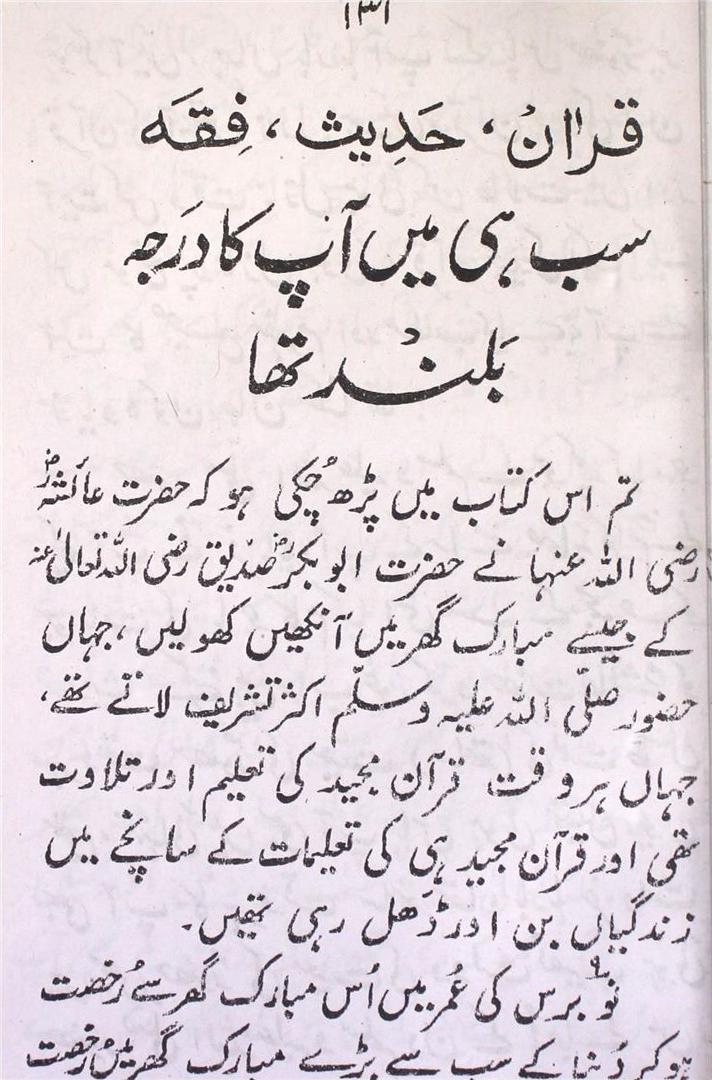 ۱۳۱
قراٰنؐ، حَدِیث، فِقہَ
سب ہی میں آپ کا دَرَجہ
بَلند تھا
تم اس کتاب میں پڑھ چُکی ہو کہ حضرت عائشہؓ
رضی اللہ عنہا نے حضرت ابو بکرؓ صدّیق رضی اللہ تعالیٰ عنہ
کے جیسے مبارک گھر میں آنکھیں کھولیں، جہاں
حضور صلّی اللہ علیہ وسلّم اکثر تشریف لاتے تھے،
جہاں ہر وقت قرآن مجید کی تعلیم اور تلاوت
تھی اور قرآن مجید ہی کی تعلیمات کے سانچے میں
زندگیاں بن اور ڈَھل رہی تھیں۔
نَو۹ برس کی عُمر میں اُس مبارک گھر سے رُخصت
ہو کر دُنیا کے سب سے بڑے مبارک گھر میں رخصت